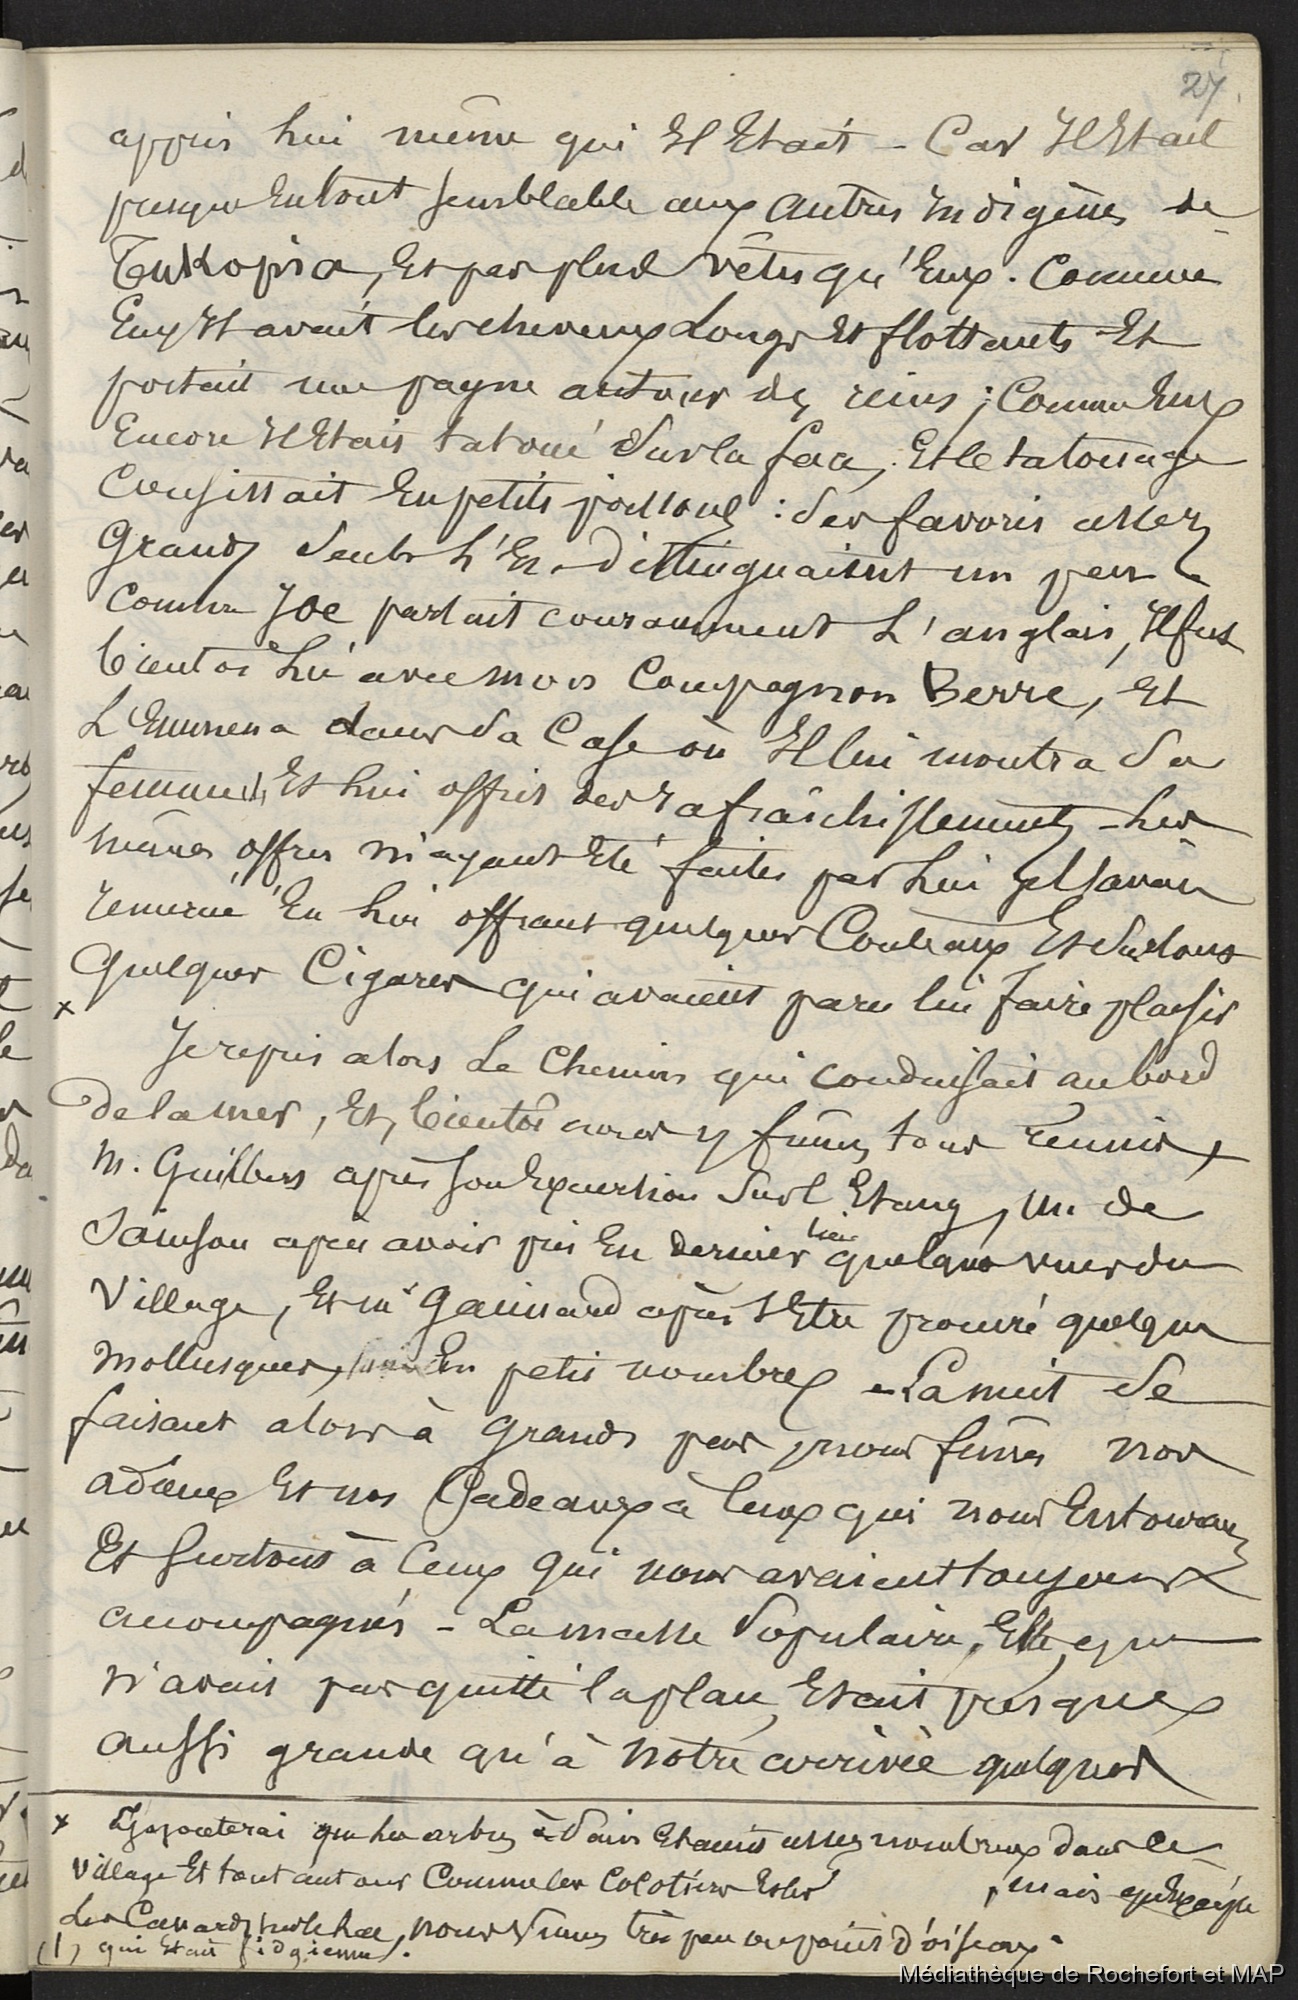 27
appris lui même qui Il Etait - Car Il Etait
presque En tout semblable aux autres Indigènes de
Tukopia, Et pas plus vêtus qu'Eux. Comme
Eux Il avait les cheveux Longs Et flottants Et
portait une pagne autour des reins; Comme Eux
Encore Il Etait tatoué Sur la face, Et le tatouage
Consistait En petits poissons : des favoris assez
Grands Seuls L'En distinguaient un peu
Comme Joe parlait couramment L'anglais, Il fut
bientot Lié avec mon Compagnon Berre, Et
L'Emmena dans Sa Case où Il lui montra Sa
femme(1) Et Lui offrit des rafraîchissements - Les
mêmes offres m'ayant Eté faites par Lui je l'avais
remercié En Lui offrant quelques Couteaux Et surtout
quelques Cigares qui avaient paru lui faire plaisir
x
Je repris alors Le Chemin qui conduisait au bord
de la mer, Et, bientôt nous y fûmes tous réunis,
M. Guilbert après Son Excursion Sur l'Etang, M. de
Sainson après avoir pris En dernier lieu quelques vues du
Village, Et Mr Gaimard après s'Etre procuré quelques
Mollusques, En petit nombre - La nuit Se
faisant alors à grands pas, nous fimes nos
adieux Et nos Cadeaux à Ceux qui nous Entouraient
Et Surtout à Ceux qui nous avaient toujours
accompagnés - La masse Populaire, Elle, que
n'avait pas quitté la plage Etait presque
aussi grande qu'à Notre arrivée quelques
x J'ajouterai que les arbres à Pain Etaient assez nombreux dans Ce
Village Et tout autour Comme les Cocotiers , mais qu'Excepté
Les Canards sur le Lac, nous vimes très peu ou point d'oiseaux.
(1) qui était fidgienne.
Médiathèque de Rochefort et MAP